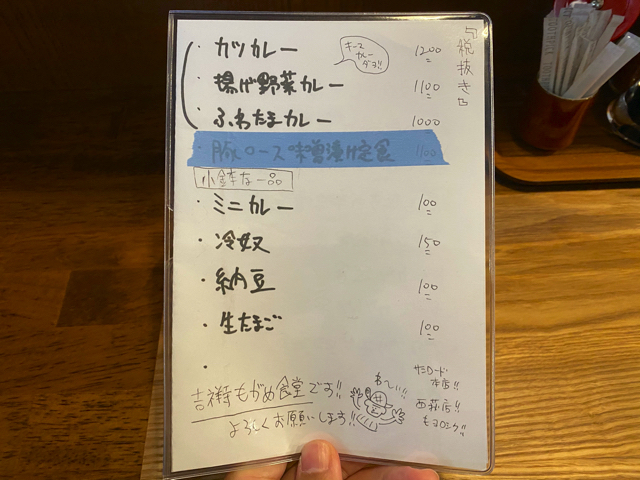 『税抜き』
・カツカレー 1200
・揚げ野菜カレー 1100
・ふわたまカレー 1000
キース
カレー
ダヨ!!
・豚ロース味噌漬け定食 1100
小鉢な一品
・ミニカレー 100
・冷奴 150
・納豆 100
・生たまご 100
・
吉祥寺もがめ食堂です!!
よろしくお願いします!!
わ〜い!!
サンロード
本店!!
西荻店!!
もヨロシク!!